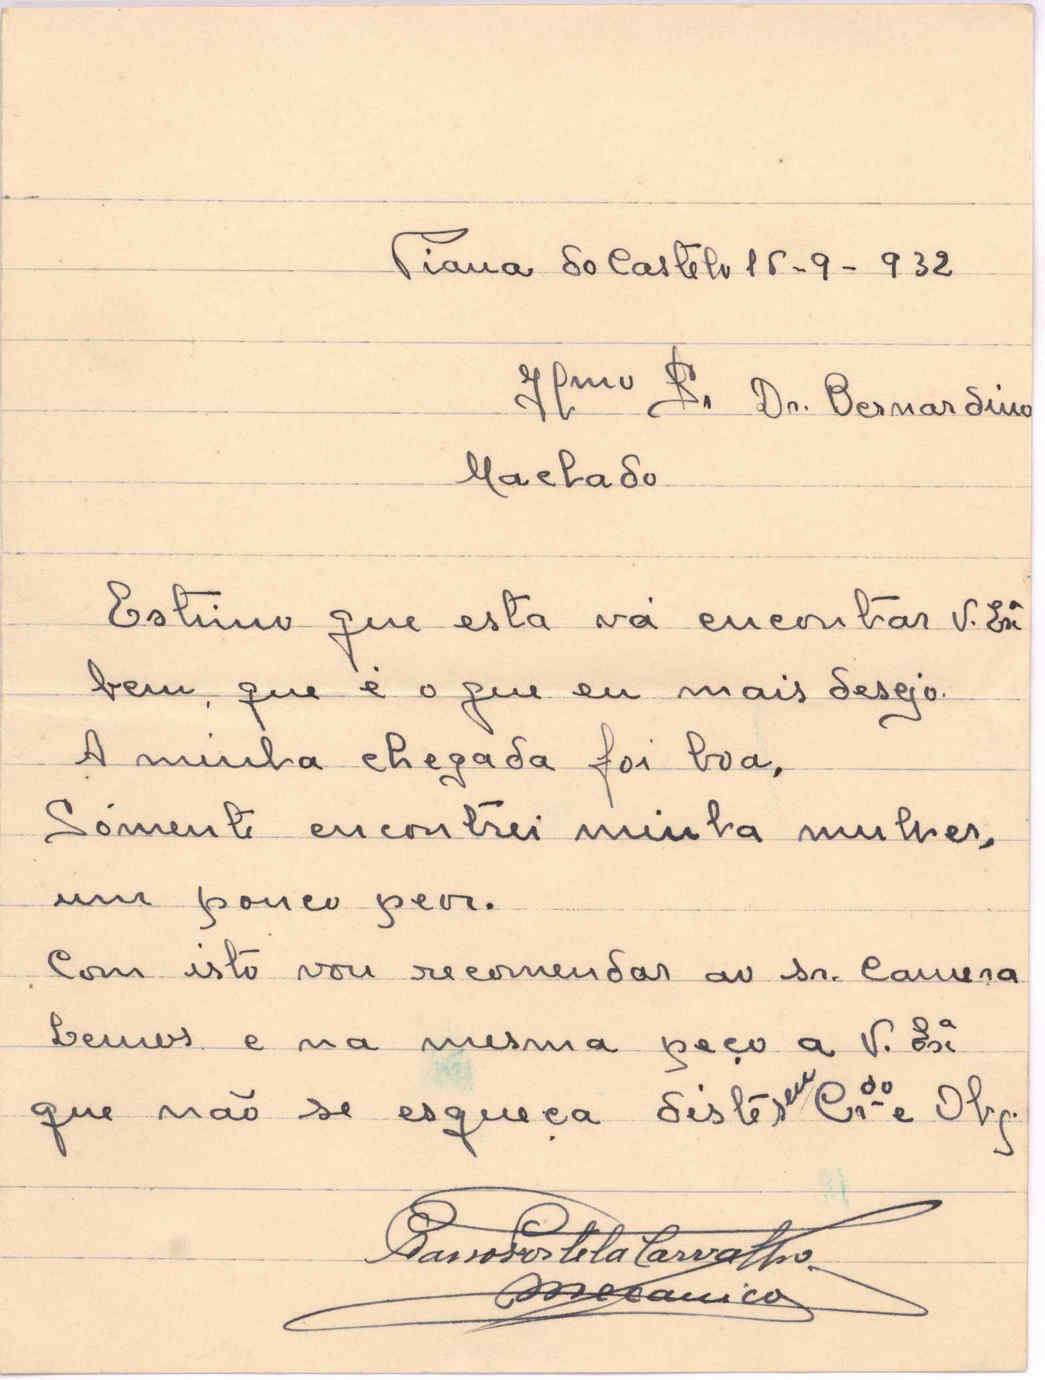 Viana do Castelo 15-9-932
Ilmo Sr. Dr. Bernardino
Machado
Estimo que esta vá encontrar V. Exª
bem, que é o que eu mais desejo.
A minha chegada foi boa,
Sómente encontrei minha mulher,
um pouco peor.
Com isto vou recomendar ao sr. Camera
Lemos e na mesma peço a V. Exª
que não se esqueça déstes eu Crdo e Obg.
Portela Carvalho
Mecanico